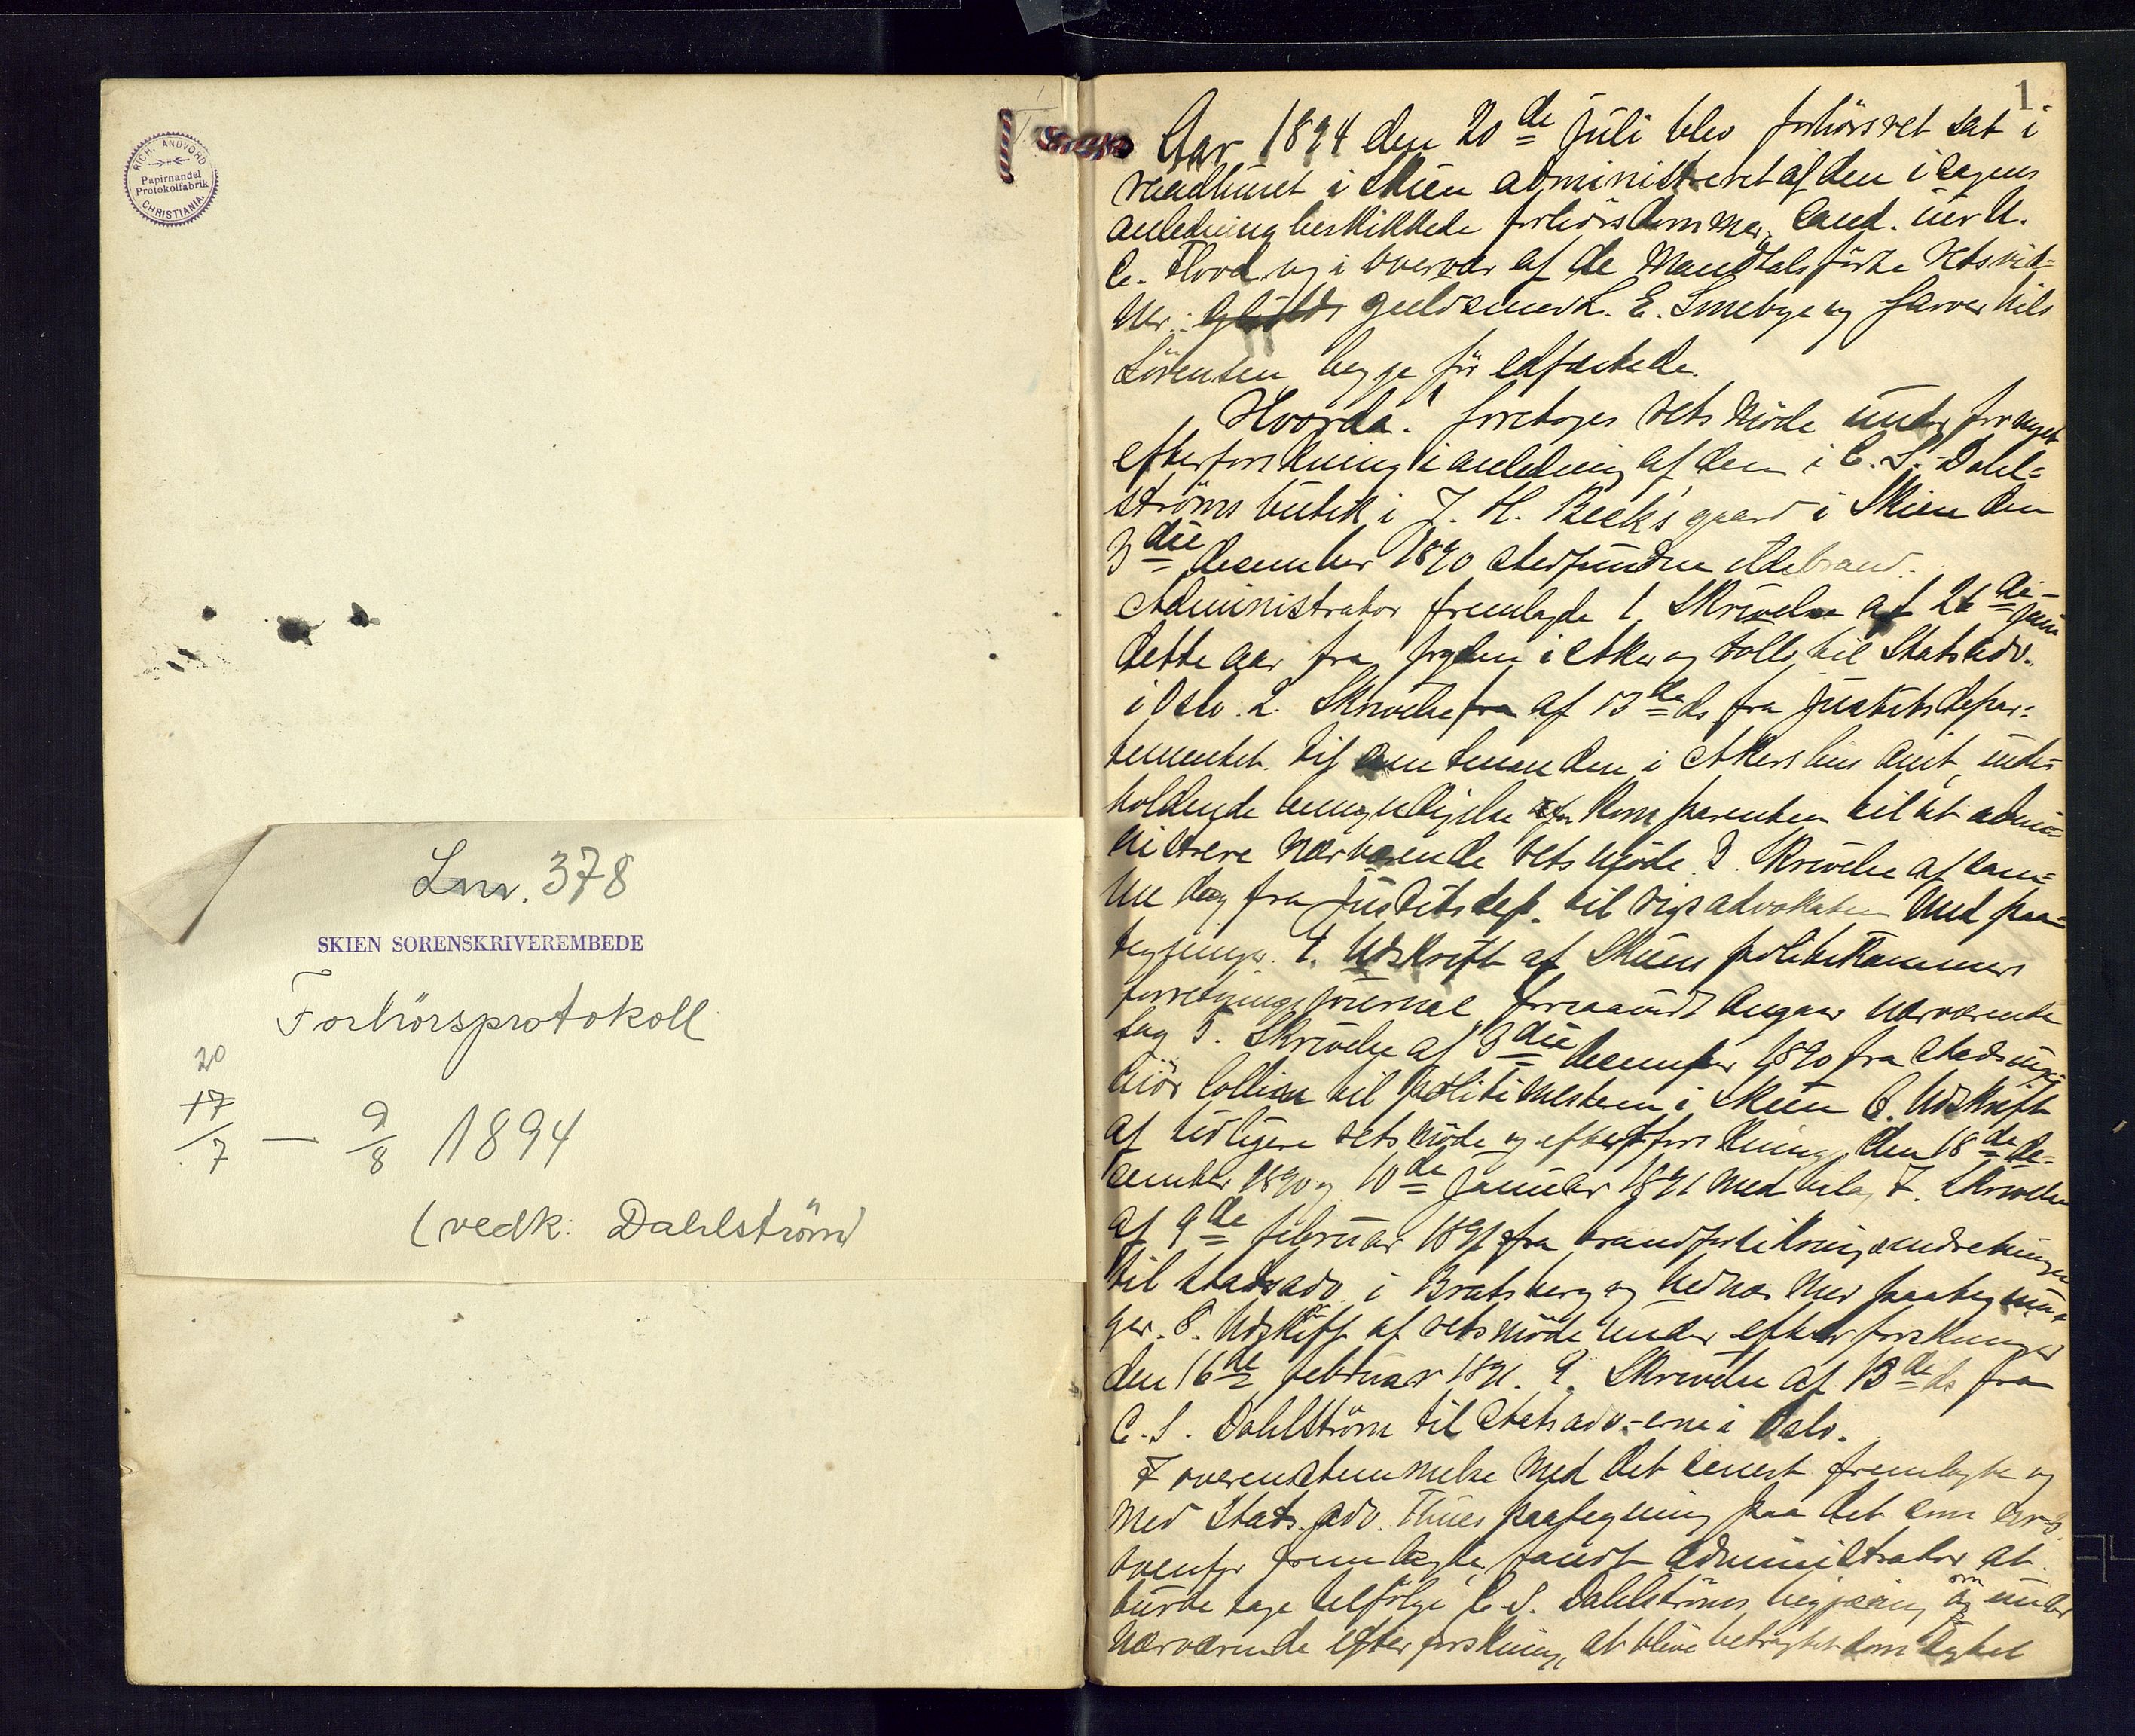 RICH. ANDVORD
Papirhandel
Protokolfabrik
CHRISTIANIA
Lnr. 378
SKIEN SORENSKRIVEREMBEDE
Forhörsprotokoll
20
17
7 — 9/8 1894
(vedk: Dahlström)
1.
Aar 1894 den 20de Juli blev forhörsret sat i
raadhuset i Skien administreret af den i sagens
anledning beskikkede forhörsdommer, cand. iur U.
C. Flood og i overvær af de mandtalsförte retsvid=
ner: guldsmed L. E. Smebye og farver Nils
Sörensen begge för edfæstede.
Hvorda: foretoges retsmöde under fornyet
efterforskning i anledning af den i C. S. Dahl=
ströms butik i J. H. Beck's gaard i Skien den
3die december 1890 stedfundne ildebrand.
Administrator fremlagde 1. Skrivelse af 26de juni
dette aar fra fogden i Aker og Follo til Statsadv.
i Oslo. 2. Skrivelse fra af 13de ds fra Justitsdepar=
tementet til amtmanden i Akershus amt, inde=
holdende bemyndigelse for komparenten til at admi=
nistrere nærværende retsmöde. 3. Skrivelse af sam=
me dag fra Justitsdep. til rigsadvokaten med paa=
tegninger. 4. Udskrift af Skiens politikammers
forretningsjournal forsaavidt angaar nærværende
sag 5. Skrivelse af 3die december 1890 fra stadsinge=
niör til politimesteren i Skien 6. Udskrift
af tidligere retsmöde og efterforskning den 18de de=
cember 1890 og 10de Januar 1891 med bilag 7. Skrivelse
af 9de februar 1891 fra brandforsikringsindretningen
til statsadv i Bratsberg og Nednæs med paategnin=
ger. 8. Udskrift af retsmöde under efterforskninger
den 16de februar 1891. 9. Skrivelse af 13de ds fra
C. S. Dahlström til Statsadv.-erne i Oslo.
I overensstemmelse med det senest fremlagte og
med Stats.adv. Thues paategning paa det som nr 3
ovenfor fremlagte, fandt administrator at
burde tage tilfölge C. S. Dahlströms begjæring om under
nærværende efterforskning, at blive betragtet som sigtet